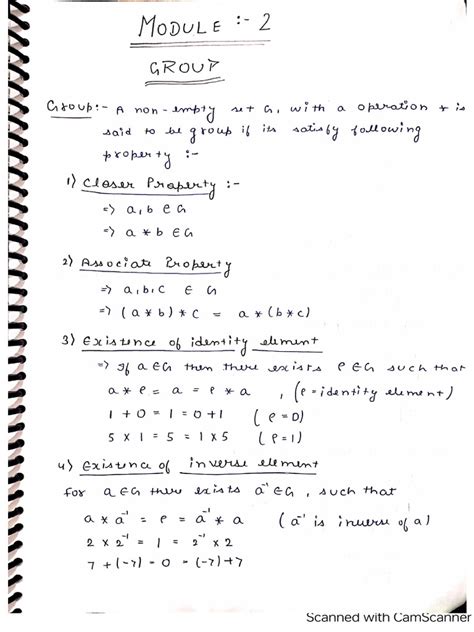 MODULE :- 2
GROUP
Group:- A non-empty set G, with a operation * is
said to be group if its satisfy following
property :-
1) Closer Property :-
=> a,b ∈ G
=> a * b ∈ G
2) Associate Property
=> a,b,c ∈ G
=> (a * b) * c = a * (b * c)
3) Existence of identity element
=> If a ∈ G then there exists e ∈ G such that
a * e = a = e * a , (e = identity element)
1 + 0 = 1 = 0 + 1 (e = 0)
5 x 1 = 5 = 1 x 5 (e = 1)
4) Existence of inverse element
for a ∈ G there exists a⁻¹ ∈ G, such that
a * a⁻¹ = e = a⁻¹ * a (a⁻¹ is inverse of a)
2 x 2⁻¹ = 1 = 2⁻¹ x 2
7 + (-7) = 0 = (-7) + 7
Scanned with CamScanner